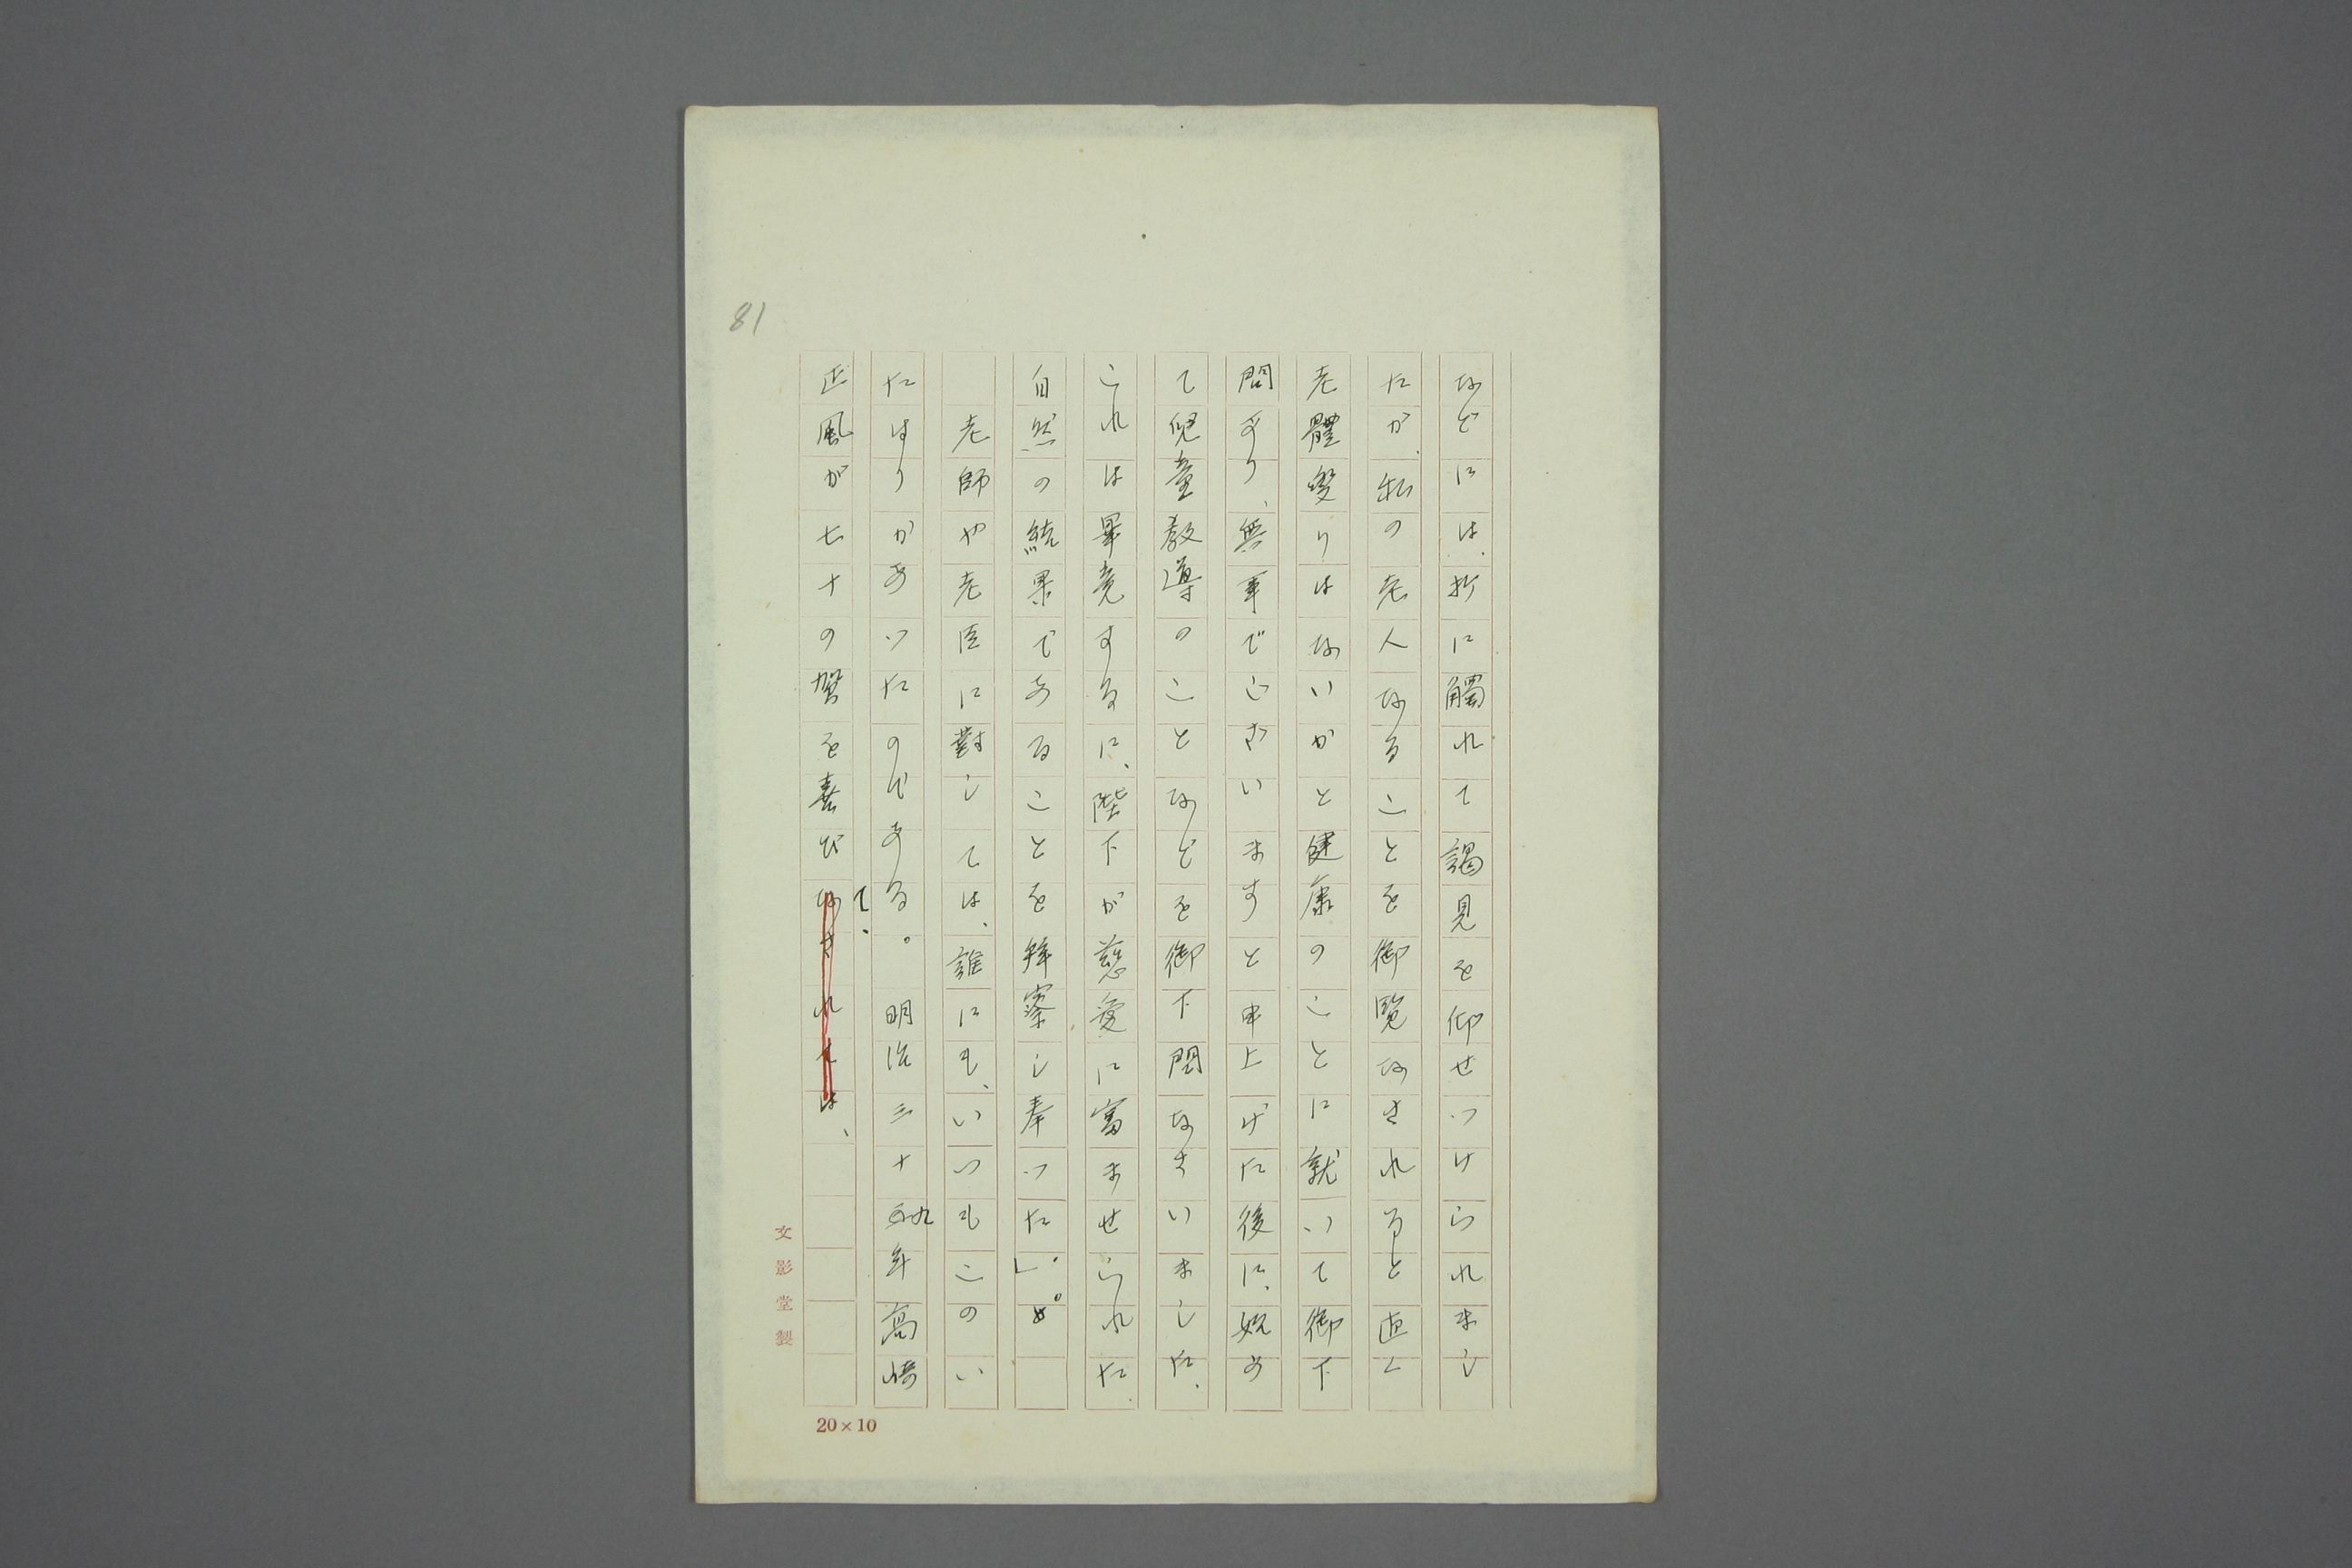 81
などには、折に觸れて謁見を仰せつけられまし
たが、私の老人なることを御覧なされると直ぐ
老體變りはないかと健康のことに就いて御下
問あり、無事でございますと申上げた後に、始め
て兒童教導のことなどを御下問なさいました。
これは畢竟するに、陛下が慈愛に富ませられた
自然の結果であることを拜察し奉つた」。と。
老師や老臣に對しては、誰にも、いつもこのい
たはりがあつたのである。明治三十九年高崎
正風が七十の賀を喜びて、なされては、
文影堂製
20×10